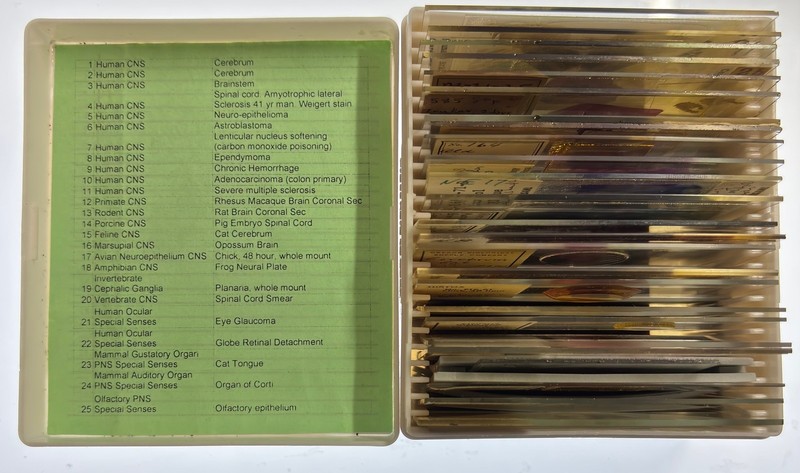 1 Human CNS Cerebrum
2 Human CNS Cerebrum
3 Human CNS Brainstem
Spinal cord. Amyotrophic lateral
4 Human CNS Sclerosis 41 yr man. Weigert stain
5 Human CNS Neuro-epithelioma
6 Human CNS Astroblastoma
Lenticular nucleus softening
7 Human CNS (carbon monoxide poisoning)
8 Human CNS Ependymoma
9 Human CNS Chronic Hemorrhage
10 Human CNS Adenocarcinoma (colon primary)
11 Human CNS Severe multiple sclerosis
12 Primate CNS Rhesus Macaque Brain Coronal Sec
13 Rodent CNS Rat Brain Coronal Sec
14 Porcine CNS Pig Embryo Spinal Cord
15 Feline CNS Cat Cerebrum
16 Marsupial CNS Opossum Brain
17 Avian Neuroepithelium CNS Chick, 48 hour, whole mount
18 Amphibian CNS Frog Neural Plate
Invertebrate
19 Cephalic Ganglia Planaria, whole mount
20 Vertebrate CNS Spinal Cord Smear
Human Ocular
21 Special Senses Eye Glaucoma
Human Ocular
22 Special Senses Globe Retinal Detachment
Mammal Gustatory Organ
23 PNS Special Senses Cat Tongue
Mammal Auditory Organ
24 PNS Special Senses Organ of Corti
Olfactory PNS
25 Special Senses Olfactory epithelium